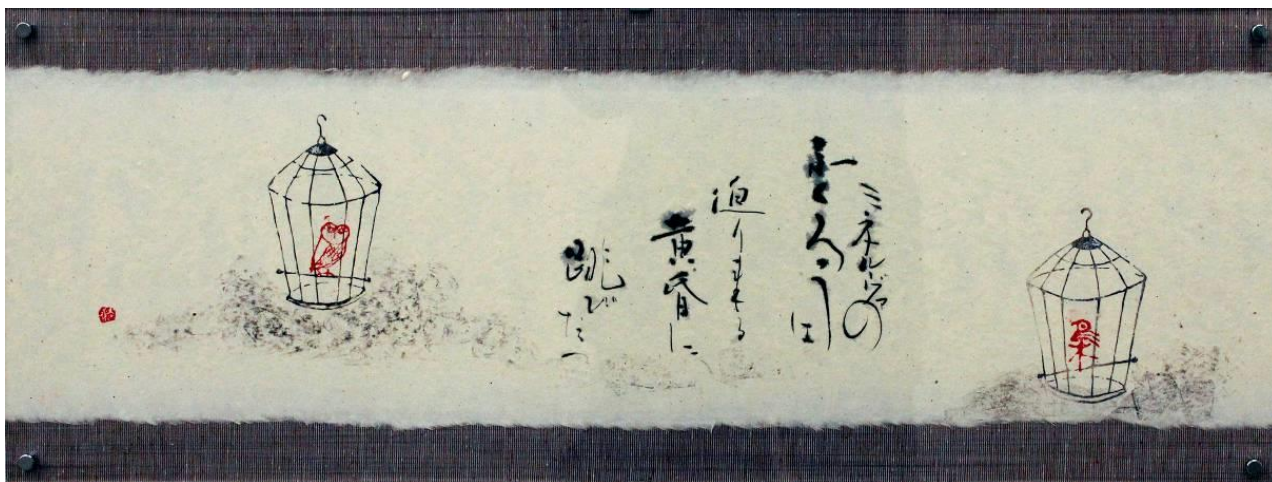 梟
ミネルヴァの
ふくろうは
迫り来る
黄昏に
跳びたつ